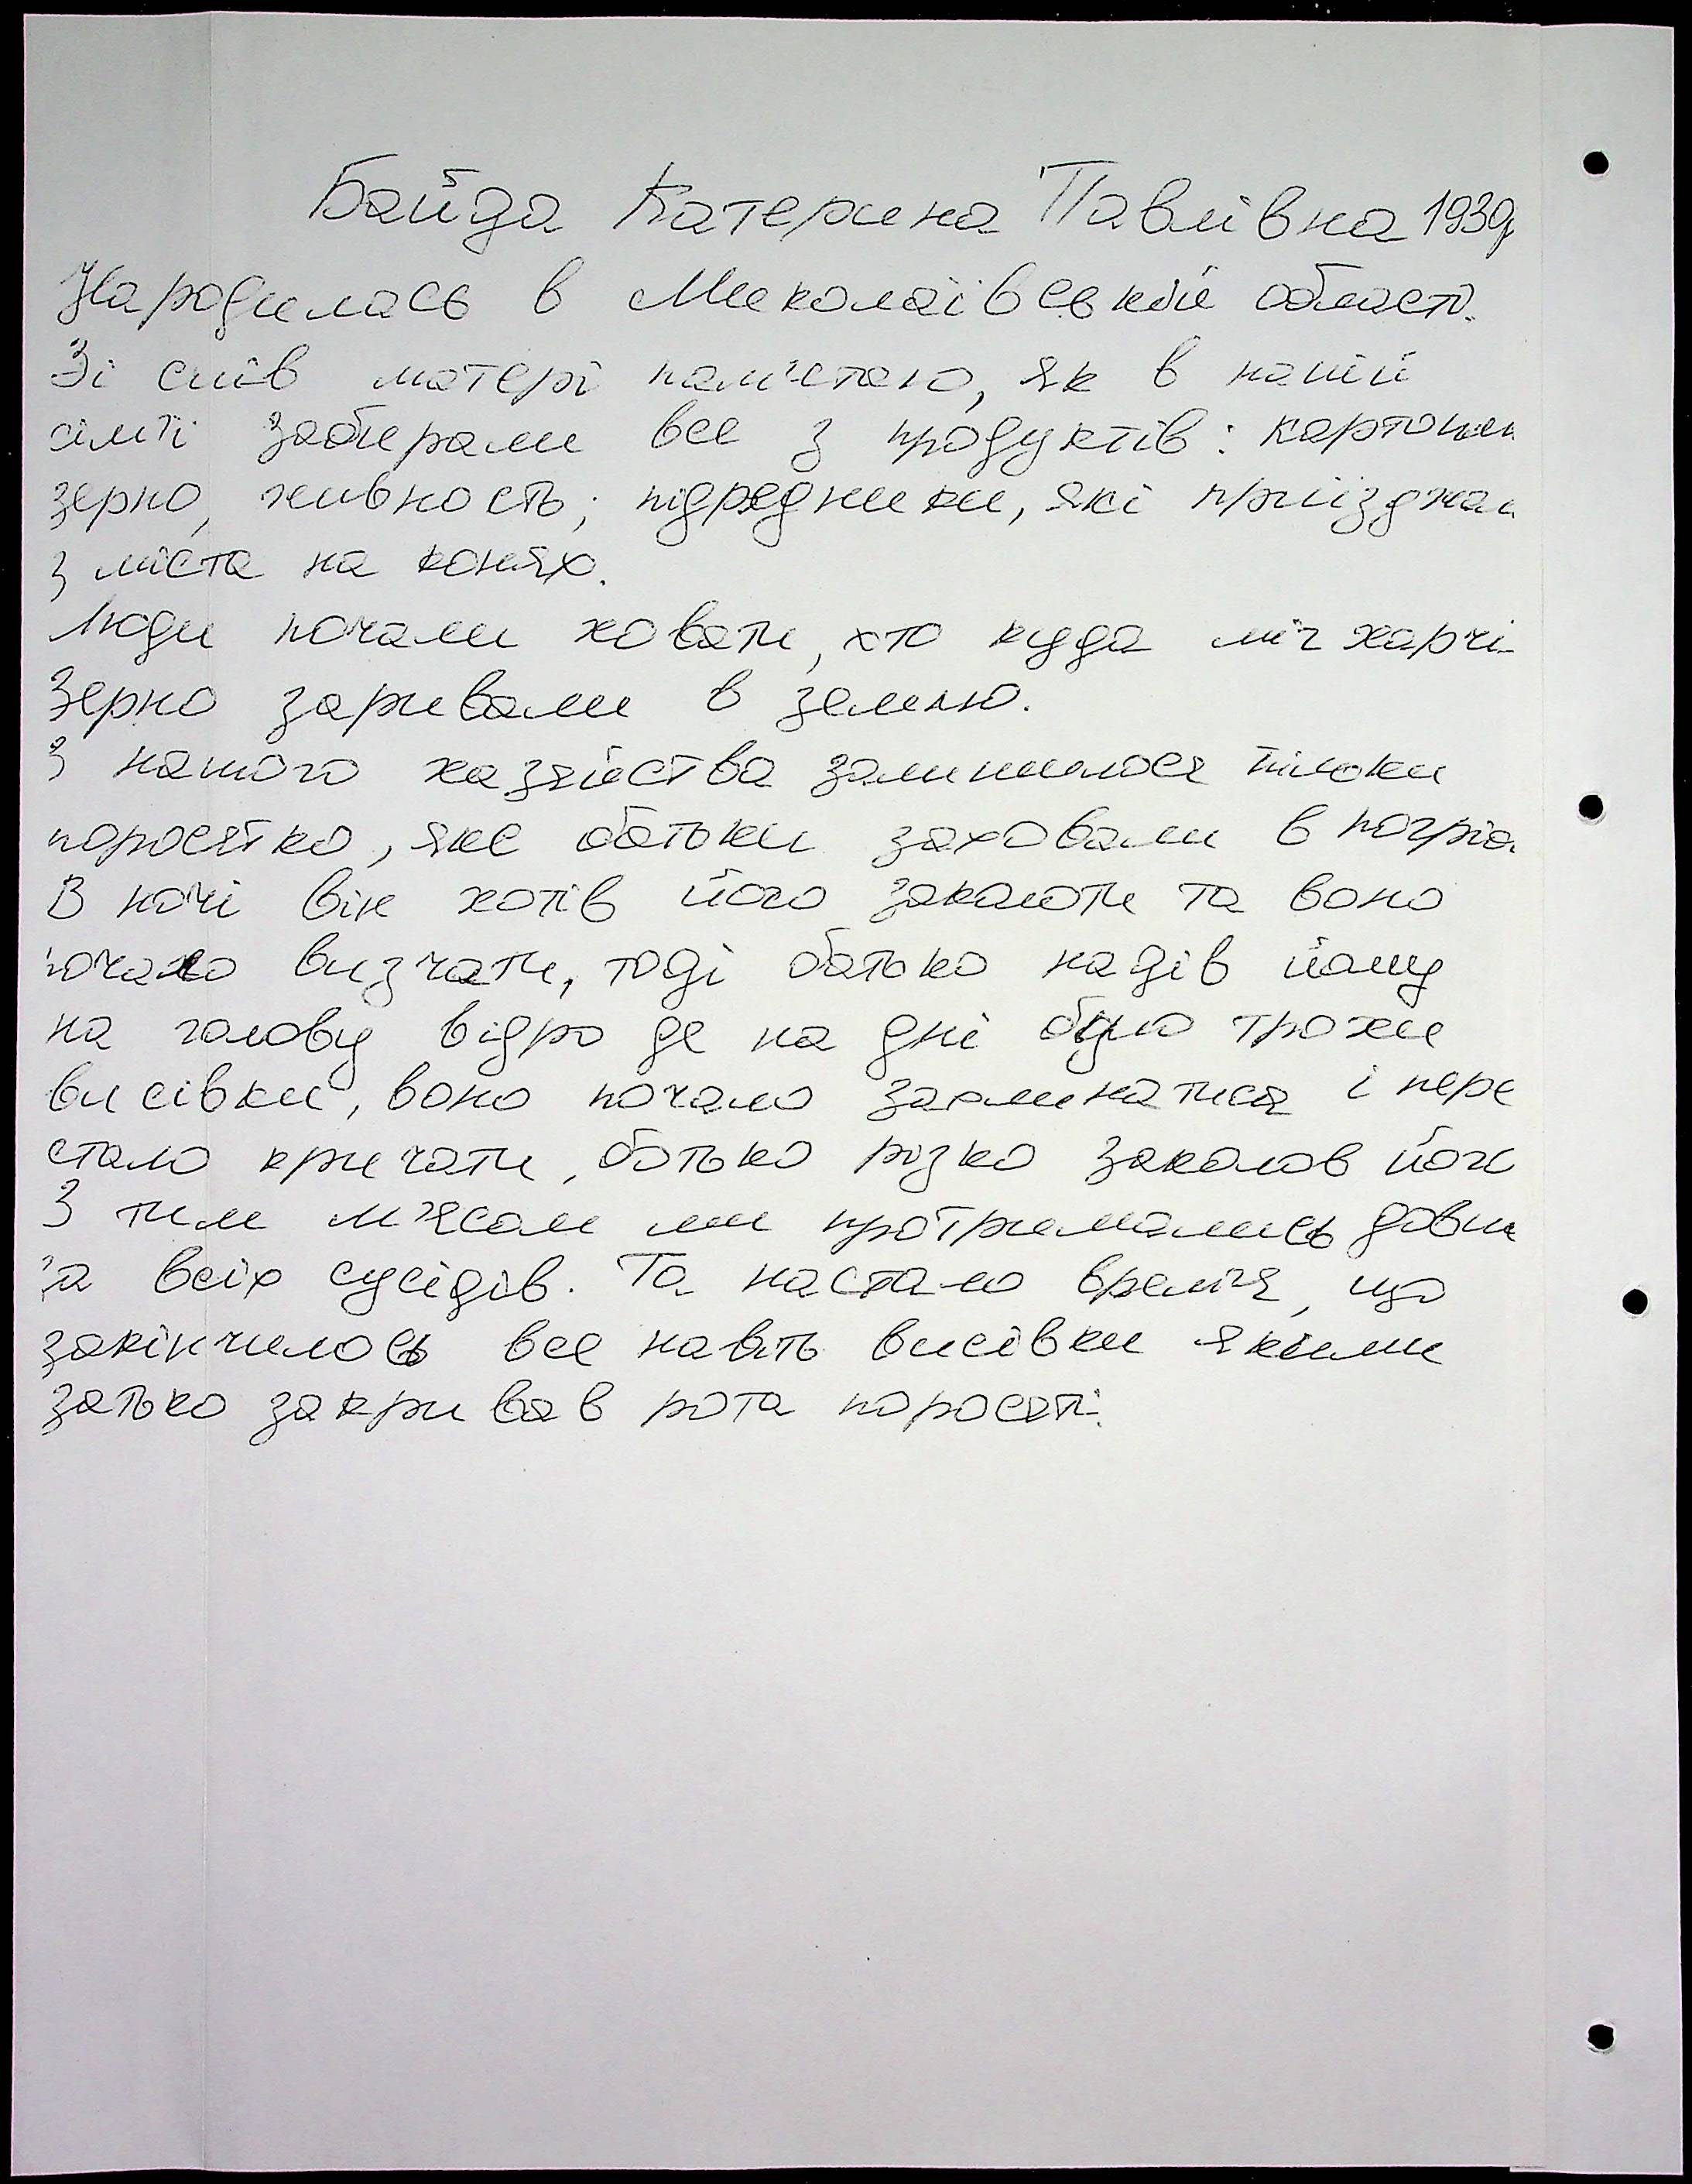 Байда Катерина Павлівна 1939
Народилась в Миколаївській області.
Зі слів матері пам'ятаю, як в нашій
сім'ї забирали все з продуктів: картопли
зерно, живность; підрядники, які приїзджал
з міста на конях.
Люди почали ховати, хто куда міг харчі.
Зерно заривали в землю.
З нашого хазяйства залишилося тільки
поросятко, яке батьки заховали в погріб.
В ночі він хотів його заколоти та воно
почало визчати, тоді батько надів йому
на голову відро де на дні було трохи
висівки, воно почало захлинатися і пере
стало кричати, батько різко заколов його
З тим м'ясом ми протримались довш
за всіх сусідів. Та настало врем'я, що
закінчилось все навіть висівки якими
батько закривав рота поросяті.